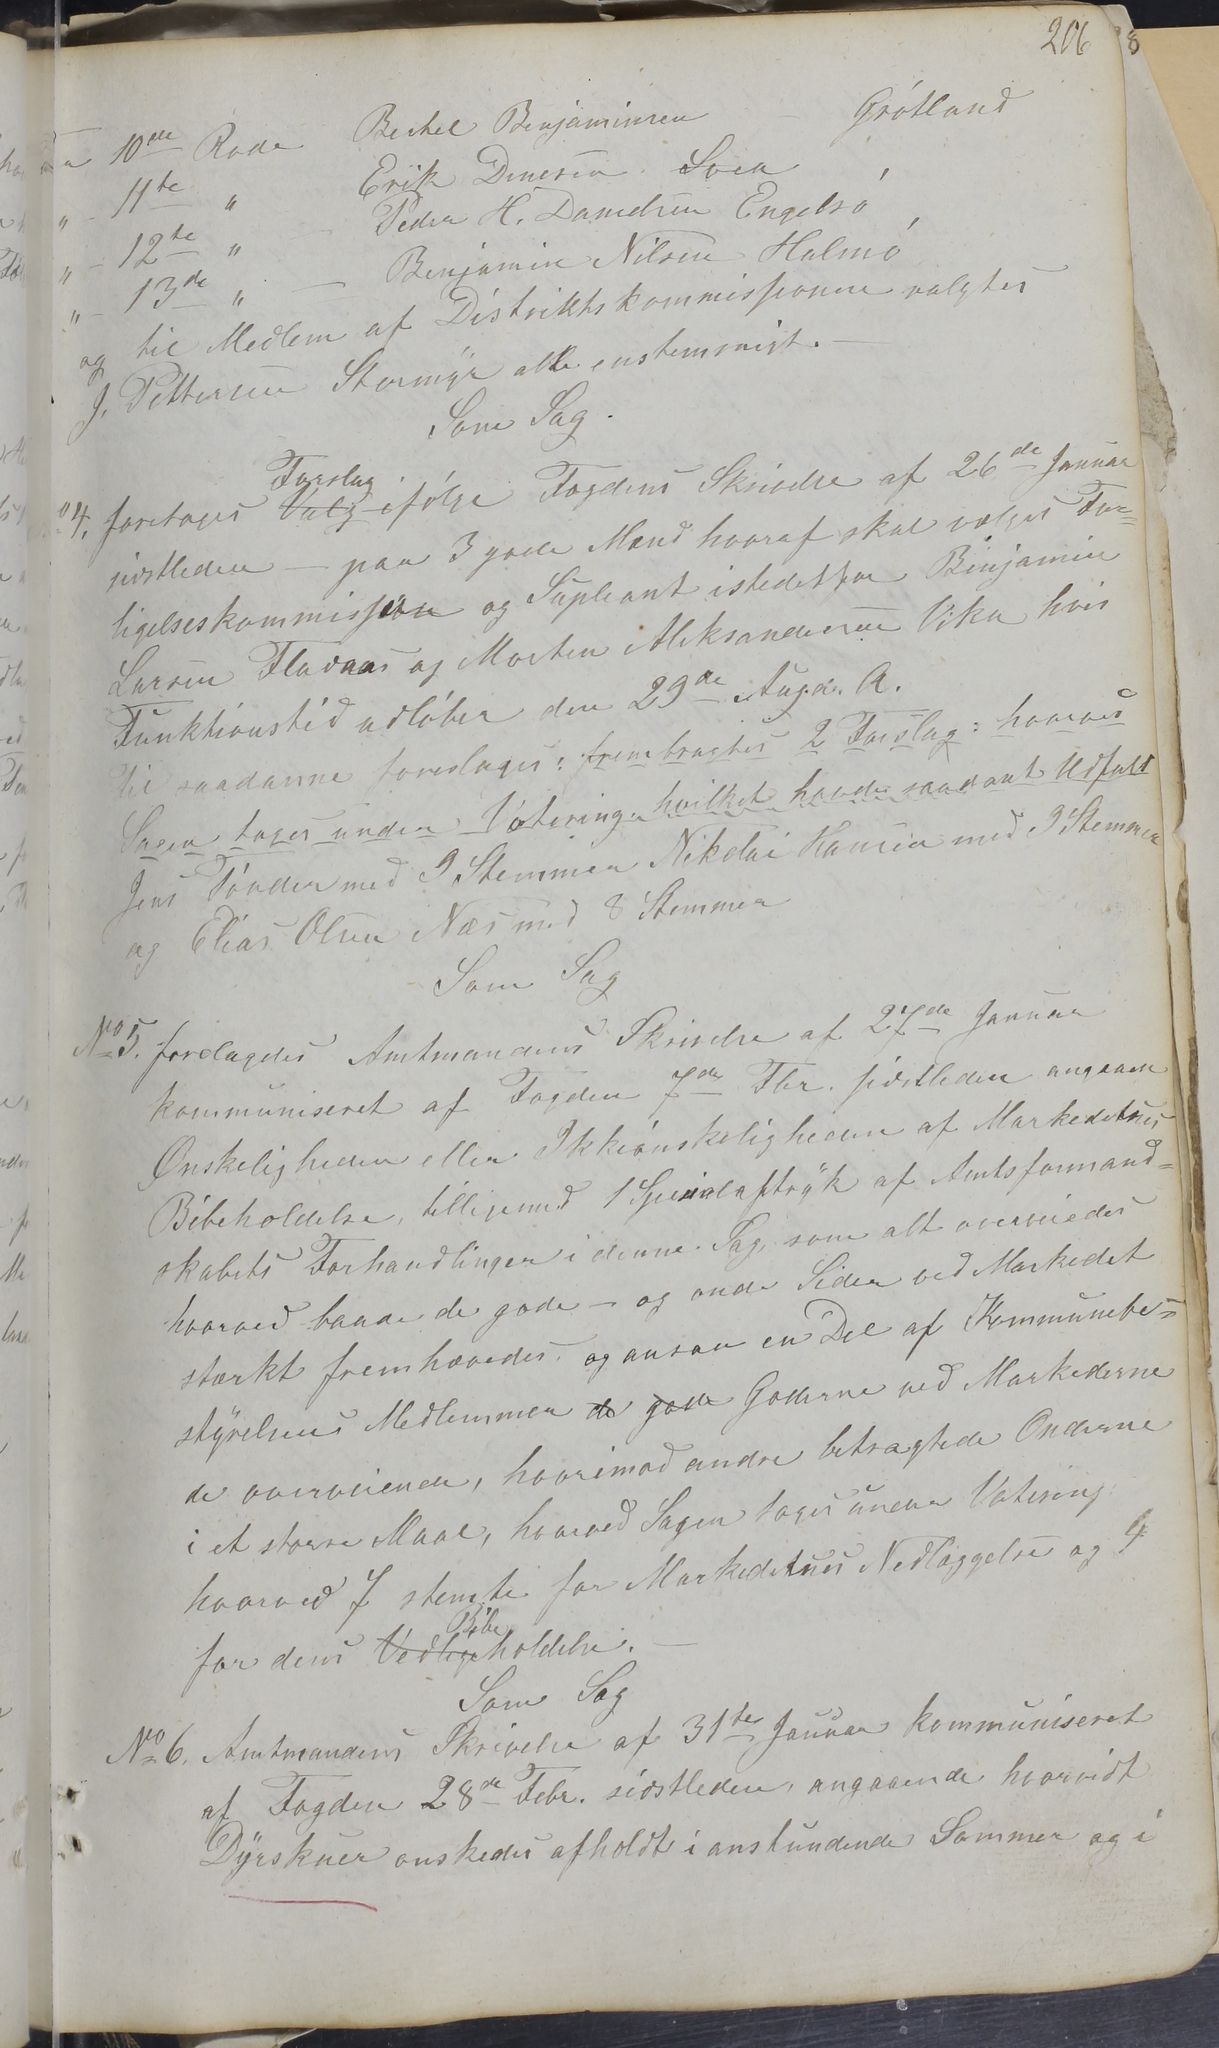 206
10de Rode Bertel Benjaminsen – Grötland
„ – 11te „ Erik Dinesen Svea
„ – 12te „ – Peder H. Danielsen Engelsö
„ – 13de „ – Benjamin Nilsen Halmö
og til Medlem af Distriktskommissionen valgtes
J. Pettersen Stormyr alle enstemmigt. –
Som Sag.
Forslag
No 4. foretoges Valg ifölge Fogdens Skrivelse af 26de Januar
sidstleden – paa 3 gode Mænd hvoraf skal vælges For=
ligelseskommission og Supleant istedetfor Benjamin
Larsen Fladaas og Morten Aleksandersen Vika hvis
Funktionstid udlöber den 29de Aug. d. A.
til saadanne foreslages: frembragtes 2 Forslag: hvorved
Sagen toges under Votering hvilket havde saadant Udfald
Jens Tönder med 9 Stemmer Nikolai Hansen med 9 Stemmer
og Elias Olsen Næs med 8 Stemmer
Som Sag
No 5. foredagdes Amtmandens Skrivelse af 27de Januar
kommuniseret af Fogden 7de Fbr. sidstleden angaaen
Ønskeligheden eller Ikkeönskeligheden af Markedetnes
Bibeholdelse, tilligemed 1 Specialaftryk af Amtsformand=
skabets Forhandlinger i denne Sag, som alt overveiedes
hvorved baade de gode – og onde Sider ved Markedet
stærkt fremhævedes. og ansaa en Del af Kommunebe=
styrelsens Medlemmer de gode Goderne ved Markederne
de overveiende, hvorimod andre betragtede Onderne
i et större Maal, hvorved Sagen toges under Votering
hvorved 7 stemte for Markedetnes Nedlæggelse og 9
Bibe
for dens Vedligeholdelse. –
Som Sag
No 6. Amtmandens Skrivelse af 31te Januar kommuniseret
af Fogden 28de Febr. sidstleden, angaaende hvorvidt
Dyrskuer onskedes afholdt i anstundende Sommer og i